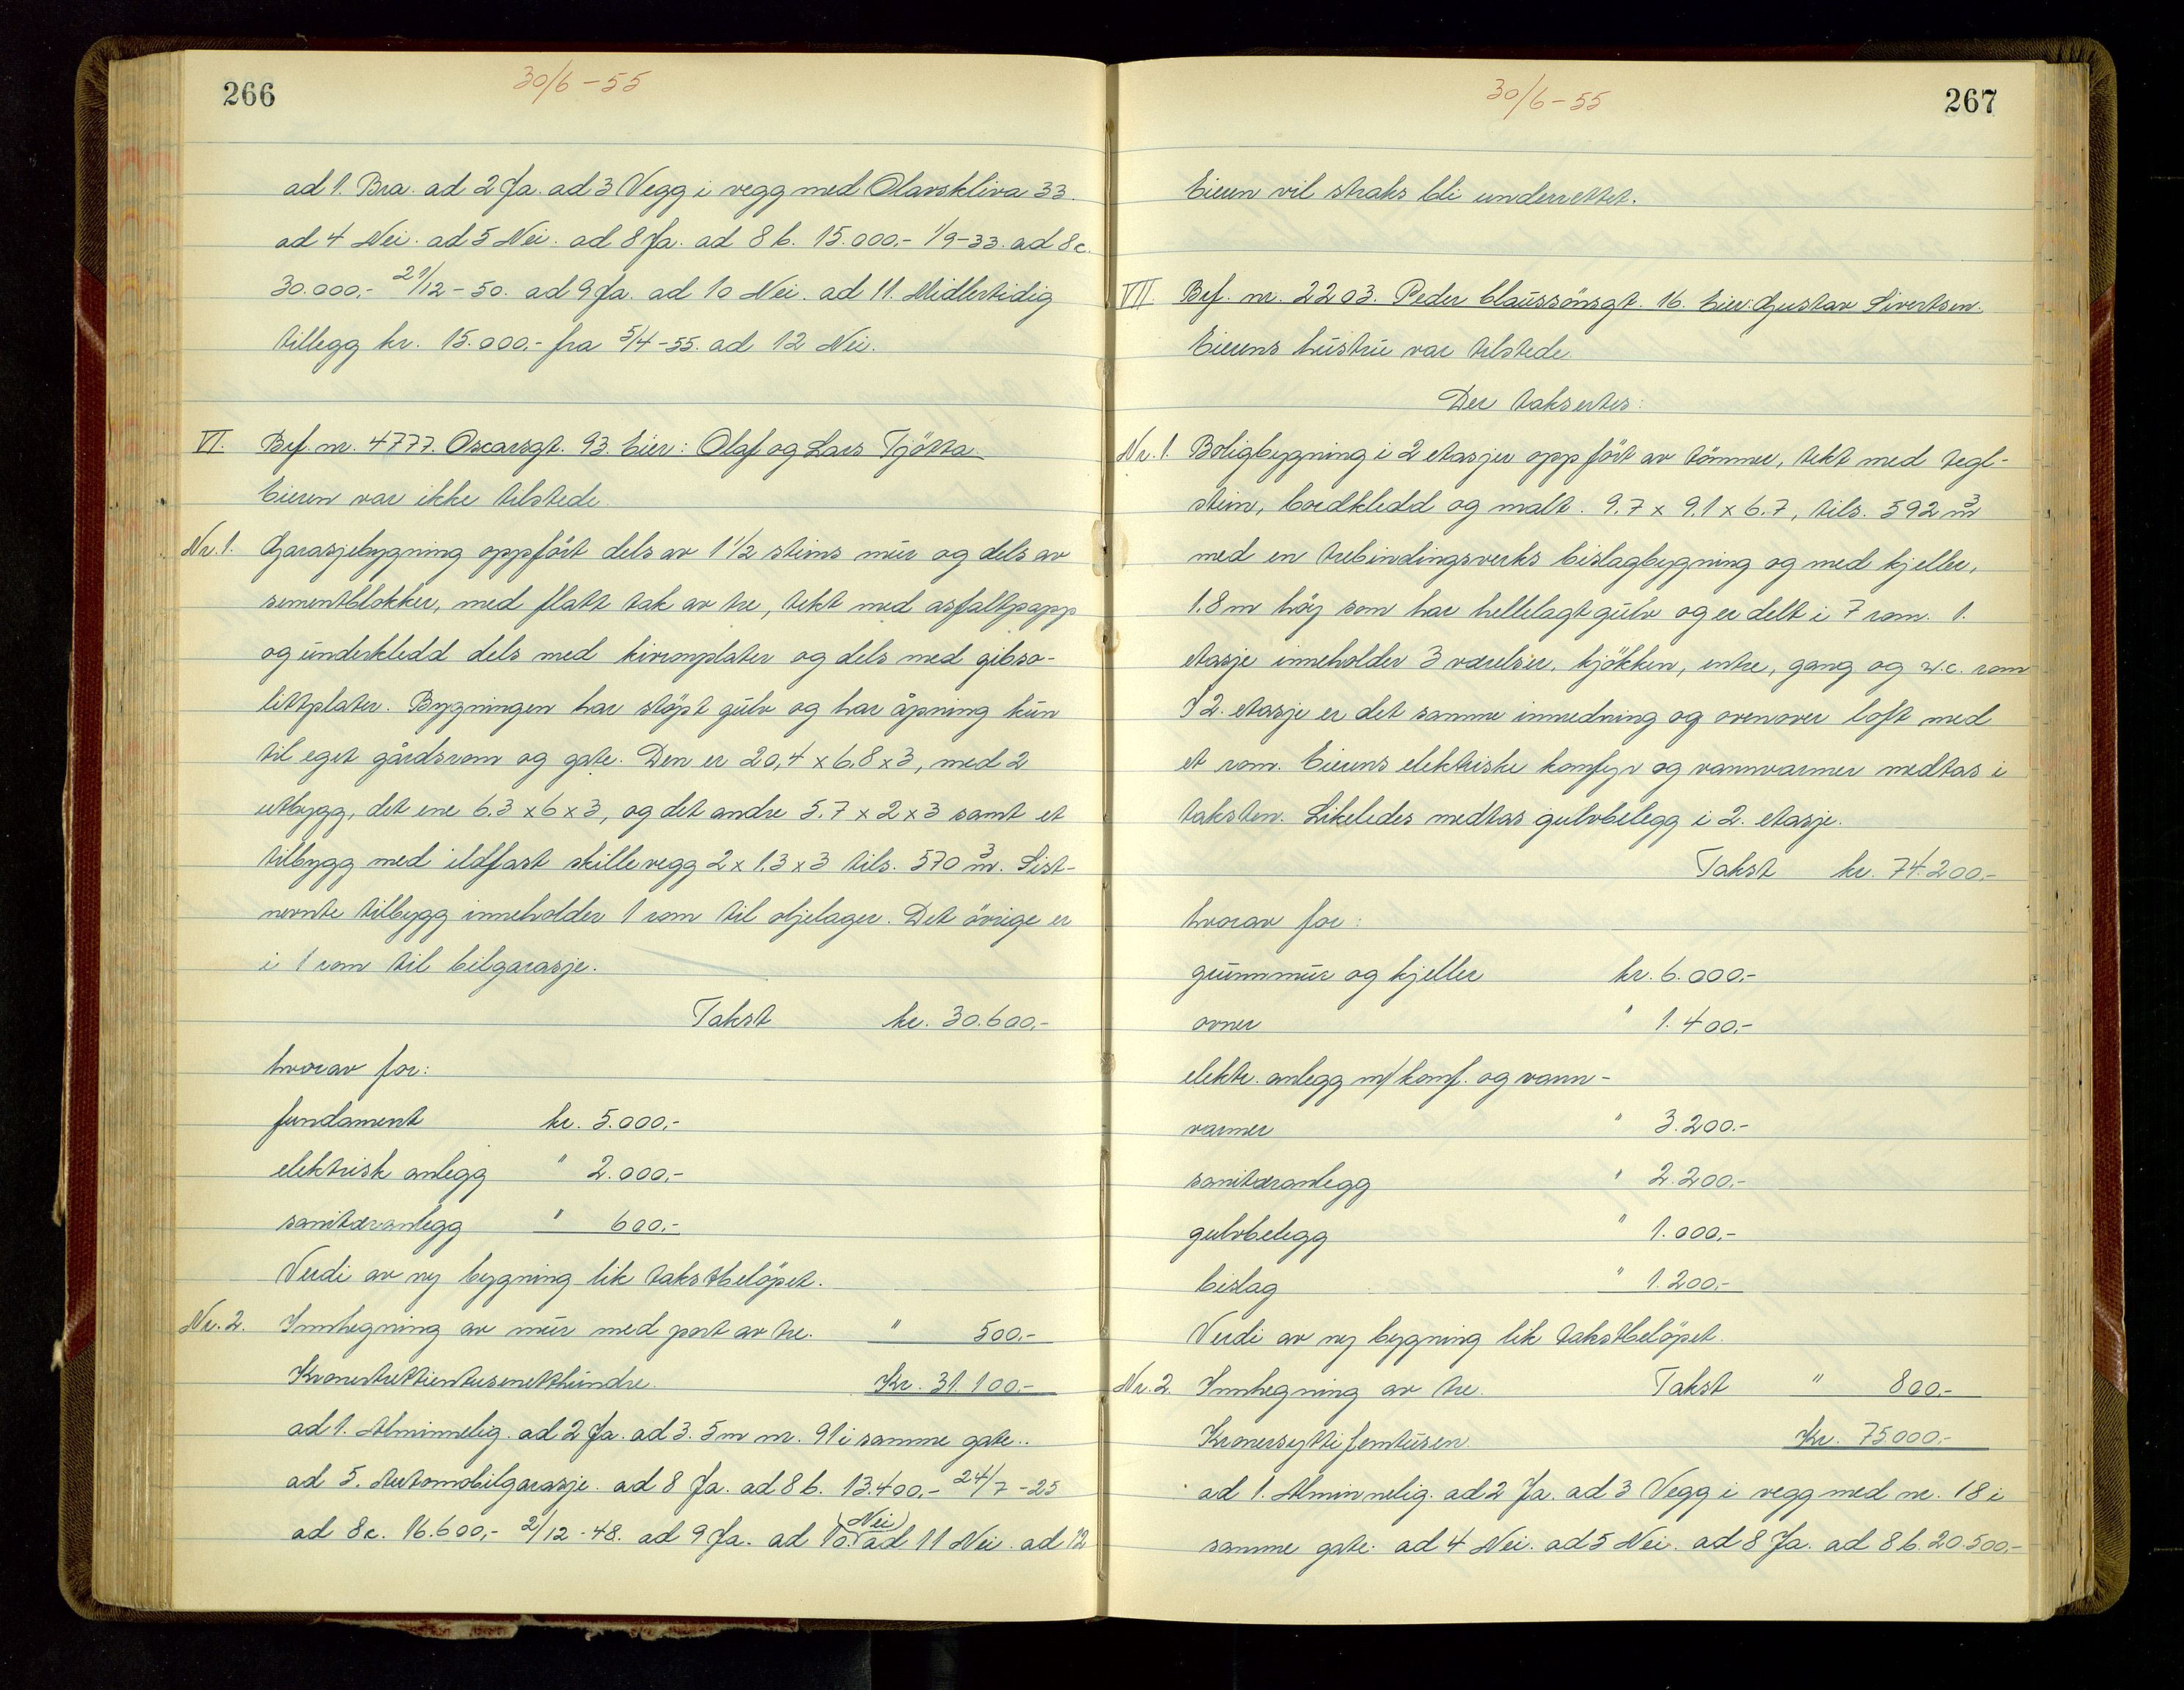 266
30/6-55
ad 1. Bra. ad 2 Ja. ad 3 Vegg i vegg med Olavskliva 33.
ad 4 Nei. ad 5 Nei. ad 8 Ja. ad 8 b. 15.000,- 1/9-33. ad 8c.
30.000,- 21/12-50. ad 9 Ja. ad 10 Nei. ad 11. Midlertidig
tillegg kr. 15.000,- fra 5/4-55. ad 12 Nei.
VI. Brf. nr. 4777. Oscarsgt. 93. Eier: Olaf og Lars Tjötta
Eieren var ikke tilstede.
Nr. 1. Garasjebygning oppfört dels av 1 1/2 steins mur og dels av
sementblokker, med flatt tak av tre, tekt med asfaltpapp
og underkledd dels med kivronplater og dels med gibso-
littplater. Bygningen har støpt gulv og har åpning kun
til eget gårdsrom og gate. Den er 20,4 x 6,8 x 3, med 2
utbygg, det ene 6.3 x 6 x 3, og det andre 5.7 x 2 x 3 samt et
tilbygg med ildfast skillevegg 2 x 1.3 x 3 tils. 570 m3. Sist-
nevnte tilbygg inneholder 1 rom til oljelager. Det övrige er
i 1 rom til bilgarasje.
Takst kr. 30.600,-
hvorav for:
fundament kr. 5.000,-
elektrisk anlegg " 2.000,-
sanitæranlegg " 600,-
Verdi av ny bygning lik takstbelöpet.
Nr. 2. Innhegning av mur med port av tre. " 500,-
Kronertrettientusenetthundre. Kr. 31.100,-
ad 1. Alminnelig. ad 2 Ja. ad 3. 5m nr. 91 i samme gate..
ad 5. Automobilgarasje. ad 8 Ja. ad 8 b. 13.400,- 24/7-25
ad 8c. 16.600,- 2/12-48. ad 9 Ja. ad 10. (Nei) ad 11 Nei. ad 12
30/6-55
267
Eieren vil straks bli underrettet.
VII. Brf. nr. 2203. Peder Claussönsgt. 16. Eier: Gustav Sivertsen.
Eierens hustru var tilstede.
Der takseres:
Nr. 1. Boligbygning i 2 etasjer oppfört av tömmer, tekt med tegl-
stein, bordkledd og malt. 9.7 x 9.1 x 6.7, tils. 592 m3
med en trebindingsverks bislagbygning og med kjeller,
1.8m höy som har hellelagt gulv og er delt i 7 rom. 1.
etasje inneholder 3 værelser, kjökken, entre, gang og w.c. rom
I 2. etasje er det samme innredning og ovenover loft med
et rom. Eierens elektriske komfyr og vannvarmer medtas i
taksten. Likeledes medtas gulvbelegg i 2. etasje.
Takst kr. 74.200,-
hvorav for:
grunnmur og kjeller kr. 6.000,-
ovner " 1.400,-
elektr. anlegg m/ komf. og vann-
varmer " 3.200,-
sanitæranlegg " 2.200,-
gulvbelegg " 1.000,-
bislag " 1.200,-
Verdi av ny bygning lik takstbelöpet.
Nr. 2. Innhegning av tre. Takst " 800,-
Kronersyttifemtusen Kr. 75.000,-
ad 1. Alminnelig. ad 2 Ja. ad 3 Vegg i vegg med nr. 18 i
samme gate. ad 4 Nei. ad 5 Nei. ad 8 Ja. ad 8 b. 20.500,-